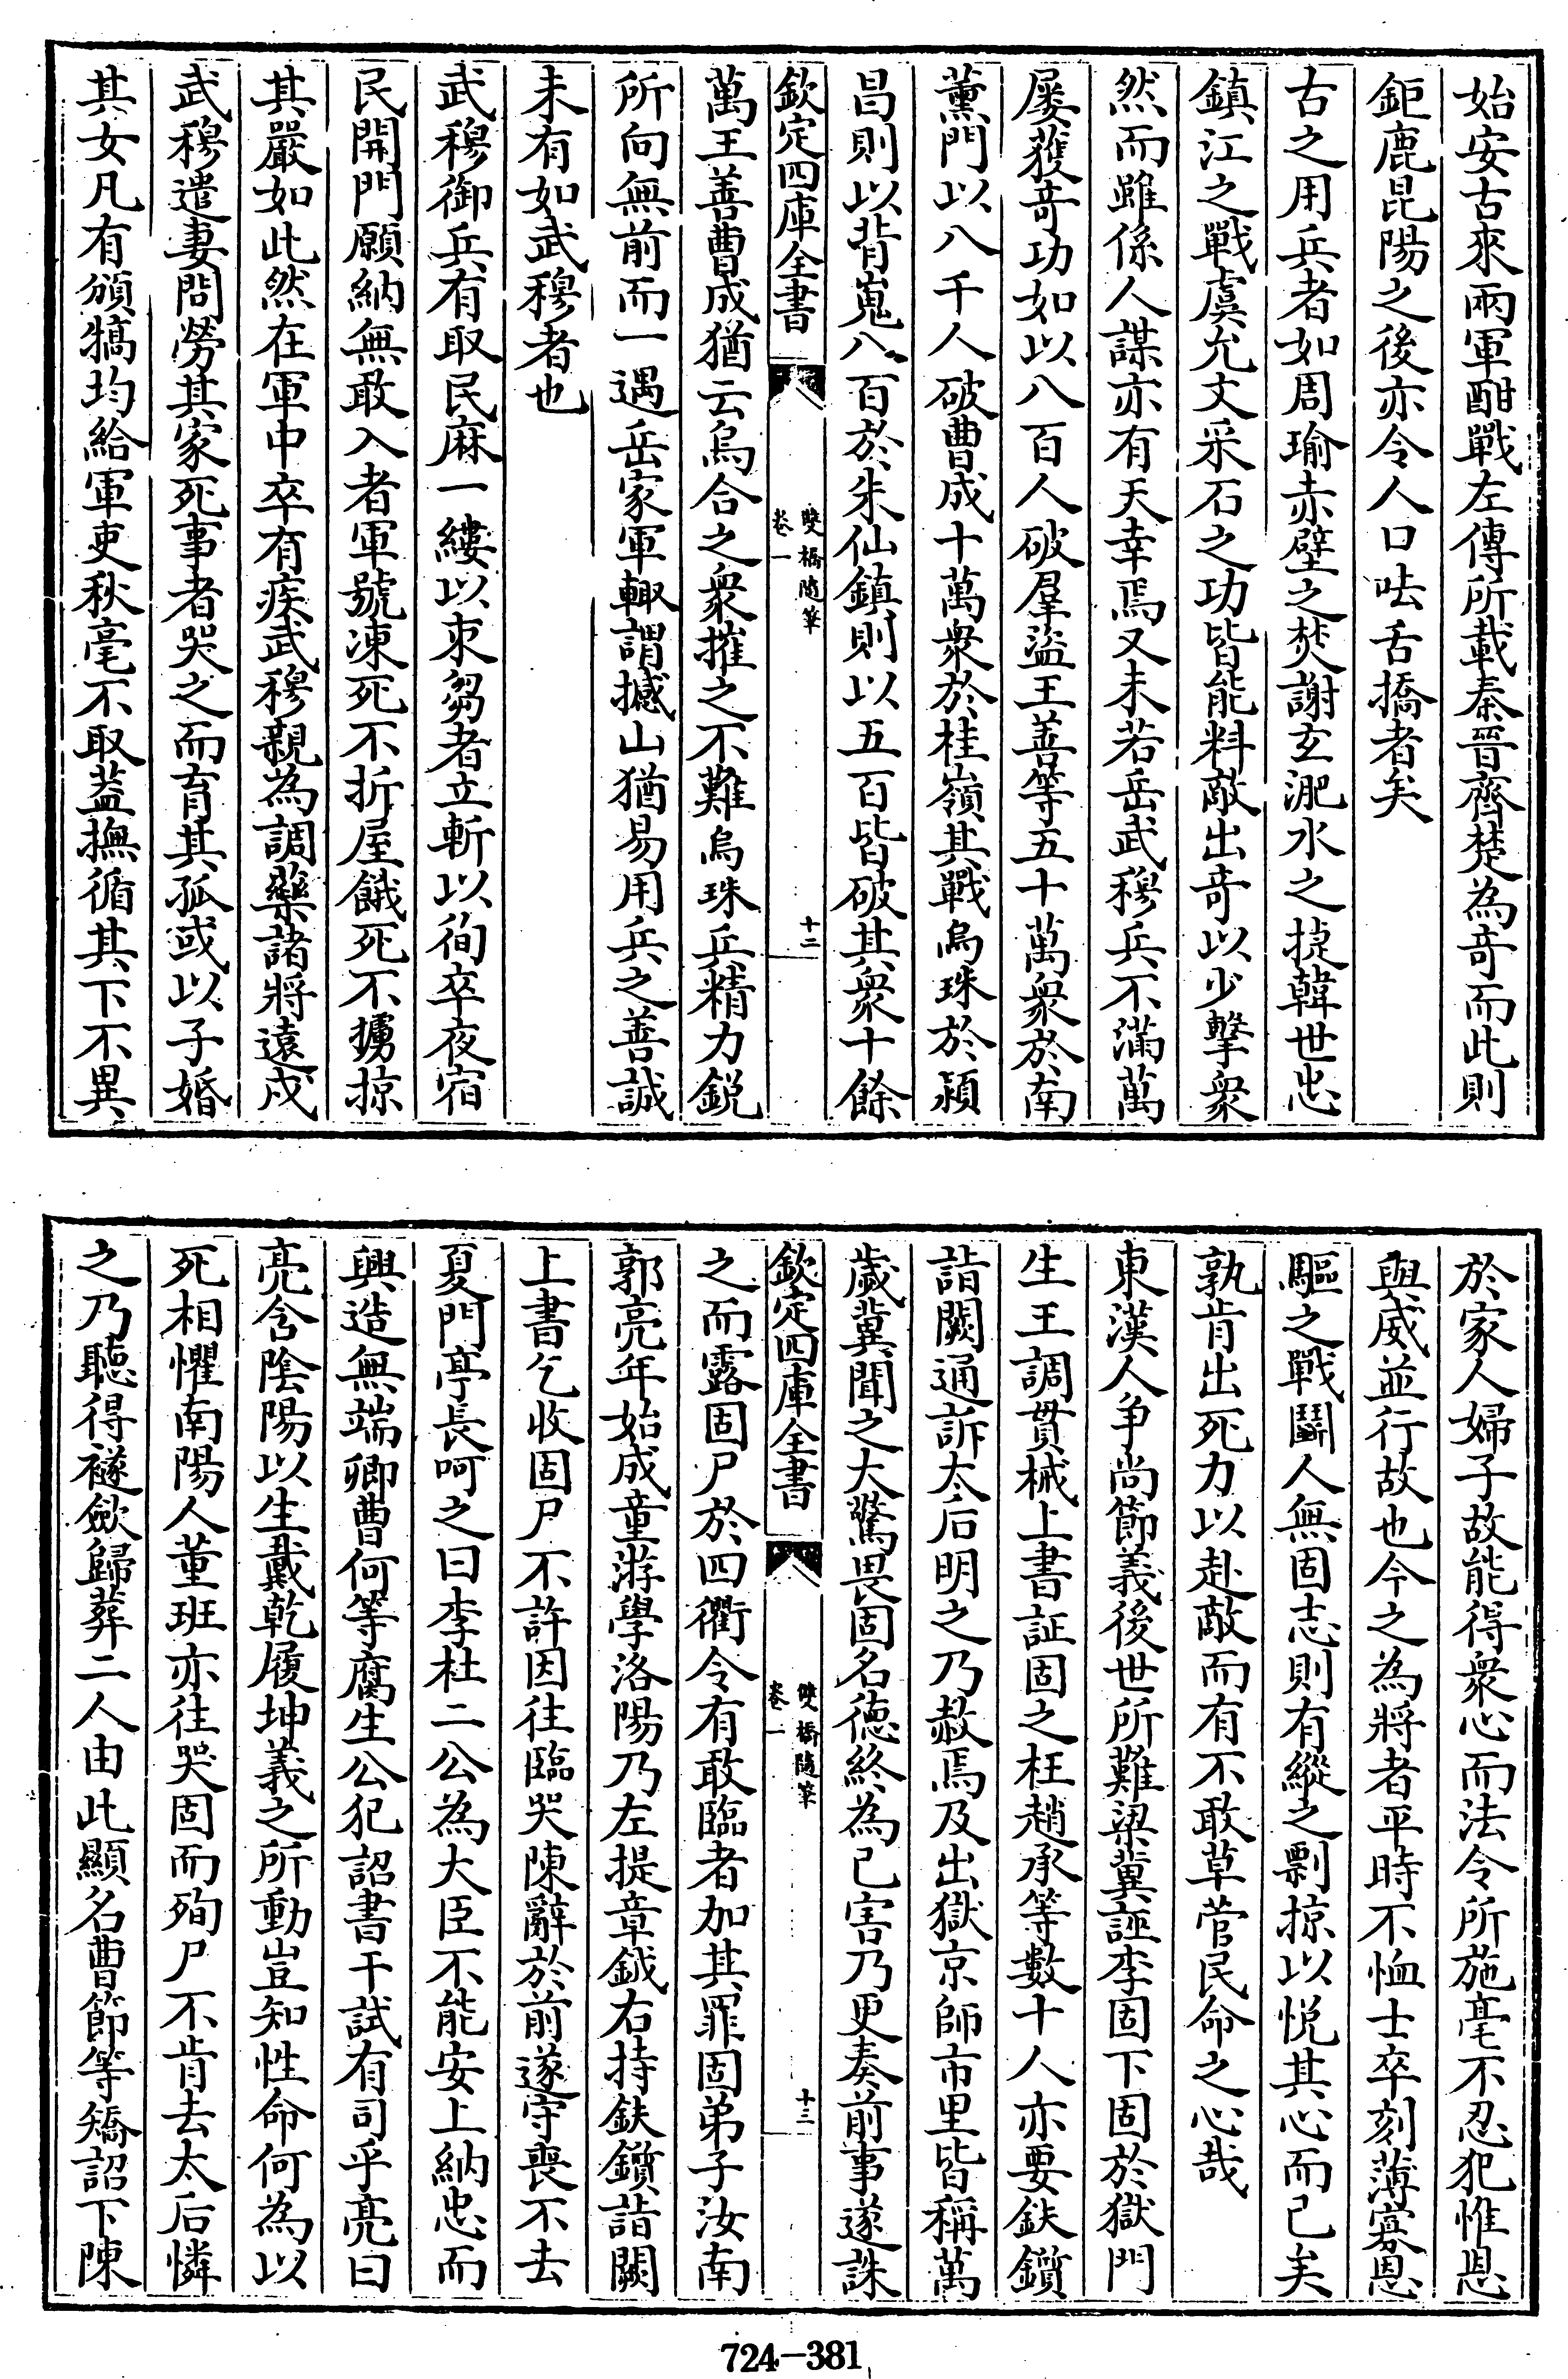 始安古來兩軍酣戰左傳所載秦晉齊楚為奇而此則
鉅鹿昆陽之後亦令人口呿舌撟者矣
古之用兵者如周瑜赤壁之焚謝玄淝水之捷韓世忠
鎮江之戰虞允文采石之功皆能料敵出奇以少擊衆
然而雖係人謀亦有天幸焉又未若岳武穆兵不滿萬
屡獲奇功如以八百人破羣盜王善等五十萬衆於南
薰門以八千人破曹成十萬衆於桂嶺其戰烏珠於潁
昌則以背嵬八百於朱仙鎮則以五百皆破其衆十餘
欽定四庫全書
雙橋隨筆
卷一
十二
萬王善曹成猶云烏合之衆摧之不難烏珠兵精力鋭
所向無前而一遇岳家軍輙謂撼山猶易用兵之善誠
未有如武穆者也
武穆御兵有取民麻一縷以束芻者立斬以徇卒夜宿
民開門願納無敢入者軍號凍死不折屋餓死不擄掠
其嚴如此然在軍中卒有疾武穆親為調藥諸將遠戍
武穆遣妻問勞其家死事者哭之而育其孤或以子婚
其女凡有頒犒均給軍吏秋毫不取蓋撫循其下不異
於家人婦子故能得衆心而法令所施毫不忍犯惟恩
與威並行故也今之為將者平時不恤士卒刻薄寡恩
驅之戰鬭人無固志則有縱之剽掠以悦其心而已矣
孰肯出死力以赴敵而有不敢草菅民命之心哉
東漢人爭尚節義後世所難梁冀誣李固下固於獄門
生王調貫械上書証固之枉趙承等數十人亦要鈇鑕
詣闕通訴太后明之乃赦焉及出獄京師市里皆稱萬
歲冀聞之大驚畏固名德終為己害乃更奏前事遂誅
欽定四庫全書
雙橋隨筆
卷一
十三
之而露固尸於四衢令有敢臨者加其罪固弟子汝南
郭亮年始成童游學洛陽乃左提章鉞右持鈇鑕詣闕
上書乞收固尸不許因往臨哭陳辭於前遂守喪不去
夏門亭長呵之曰李杜二公為大臣不能安上納忠而
興造無端卿曹何等腐生公犯詔書干試有司乎亮曰
亮含陰陽以生戴乾履坤義之所動豈知性命何為以
死相懼南陽人董班亦往哭固而殉尸不肯去太后憐
之乃聽得襚歛歸葬二人由此顯名曹節等矯詔下陳
724-381